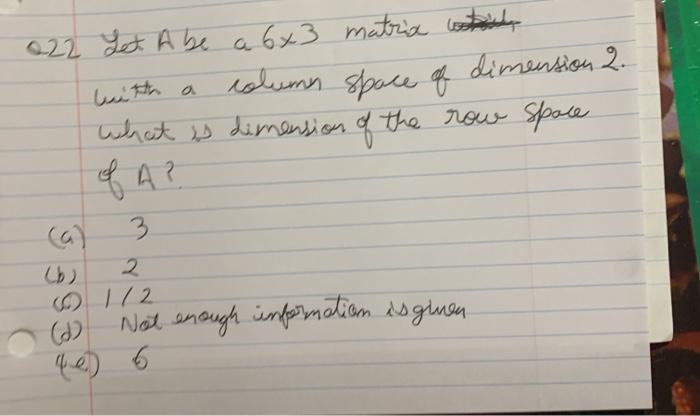 Q22 Let A be a 6x3 matrix
with a column space of dimension 2.
What is dimension of the row space
of A?
(a) 3
(b) 2
(c) 1/2
(d) Not enough information is given
(e) 6